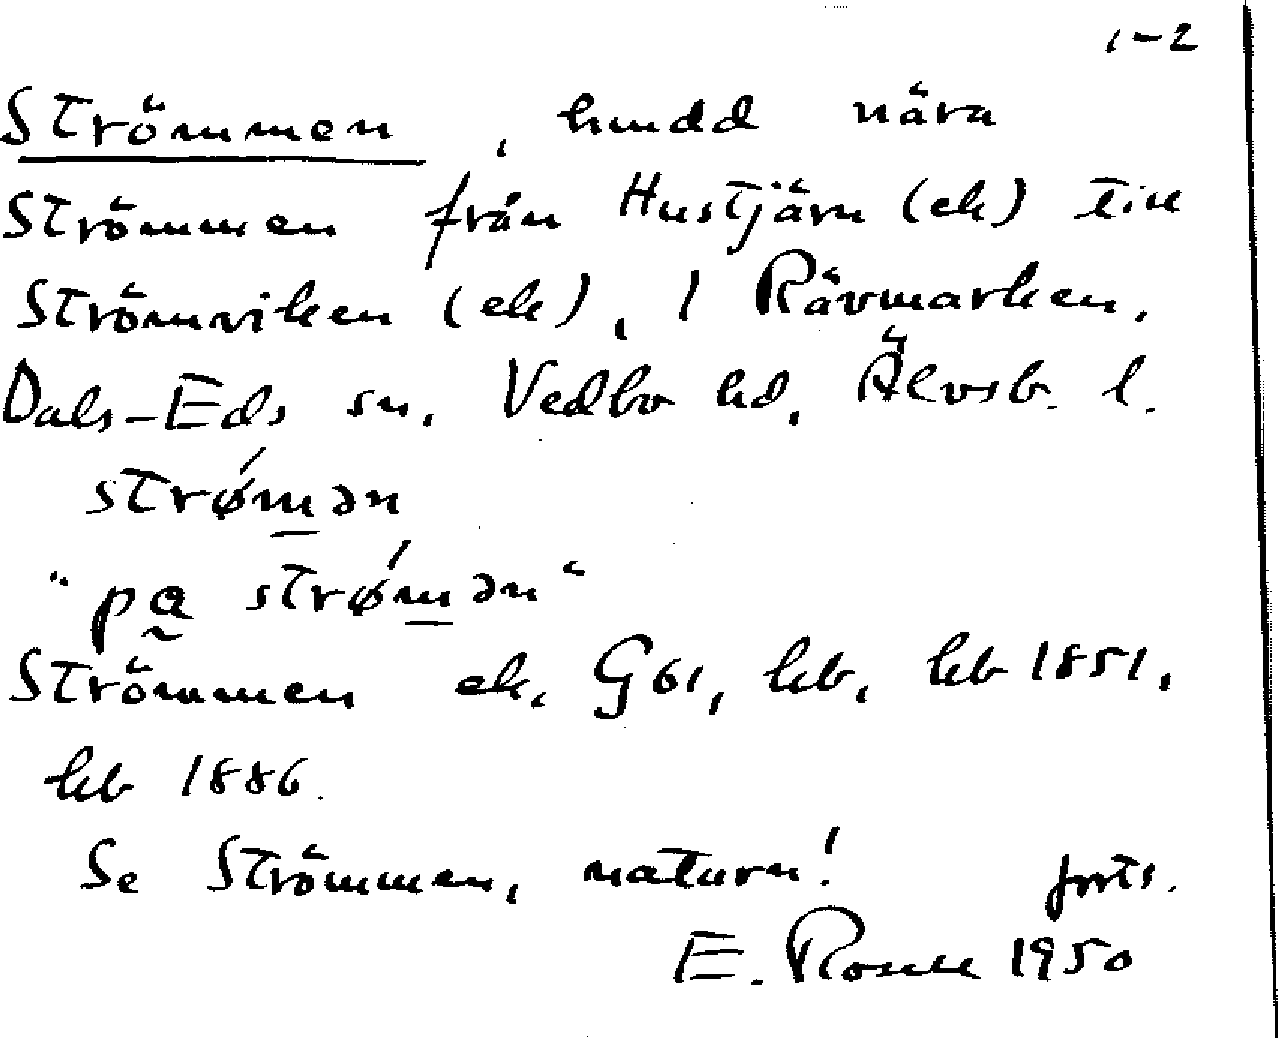 1-2
Strömmen, hmdd nära
Strömmen från Hustjärn (ek) till
Strömviken (ek), i Rävmarken,
Dals-Eds sn, Vedbo hd, Älvsb. l.
strǿmən
"pa strǿmən"
Strömmen ek, G61, kb, hb 1851,
hb 1886.
Se Strömmen, naturn! forts.
E. 1950